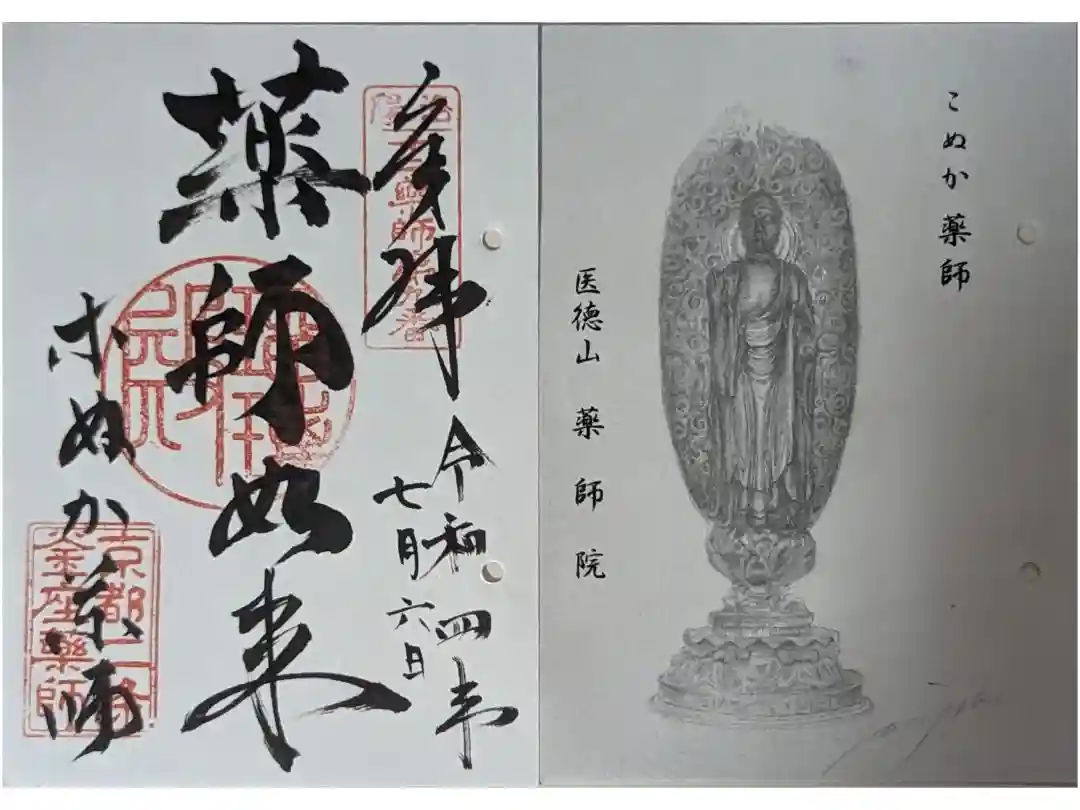 こぬか薬師
医徳山 薬師院
奉拝
令和四年
七月六日
洛陽
薬師如来
こぬか薬師
京都二条
金座藥師